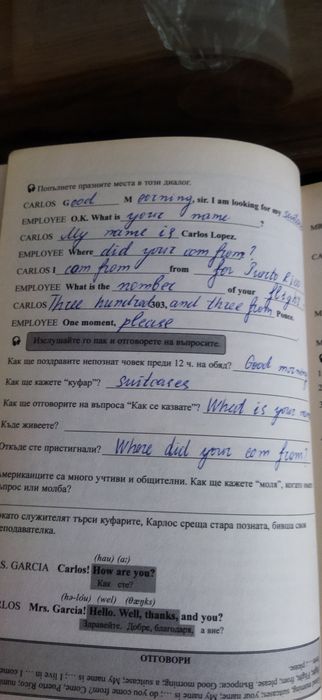 Попълнете празните места в този диалог.
CARLOS Good Morning, sir. I am looking for my
EMPLOYEE O.K. What is your name ?
CARLOS My name is Carlos Lopez.
EMPLOYEE Where did your com from?
CARLOS I com from from for
EMPLOYEE What is the nomber of your flight
CARLOS Three hundred 303, and three from Ponce.
EMPLOYEE One moment, please
Изслушайте го пак и отговорете на въпросите.
Как ще поздравите непознат човек преди 12 ч. на обяд? Good
Как ще кажете "куфар"? suitcases
Как ще отговорите на въпроса "Как се казвате"? What is your
Къде живеете?
Откъде сте пристигнали? Where did your com from?
Американците са много учтиви и общителни. Как ще кажете "моля", когато
въпрос или молба?
Докато служителят търси куфарите, Карлос среща стара позната, бивша своя
преподавателка.
(hau) (a:)
S. GARCIA Carlos! How are you?
Как сте?
(hə-lóu) (wel) (θæŋks)
LOS Mrs. Garcia! Hello. Well, thanks, and you?
Здравейте. Добре, благодаря, а вие?
ОТГОВОРИ